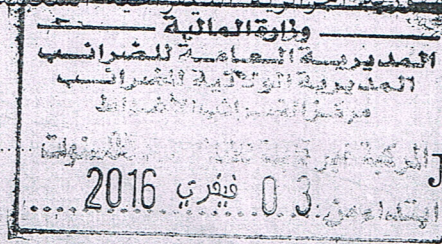 وزارة المالية
المديرية العامة للضرائب
المديرية الولائية للضرائب
مركز الضرائب
ابتداء من 03 فيفري 2016